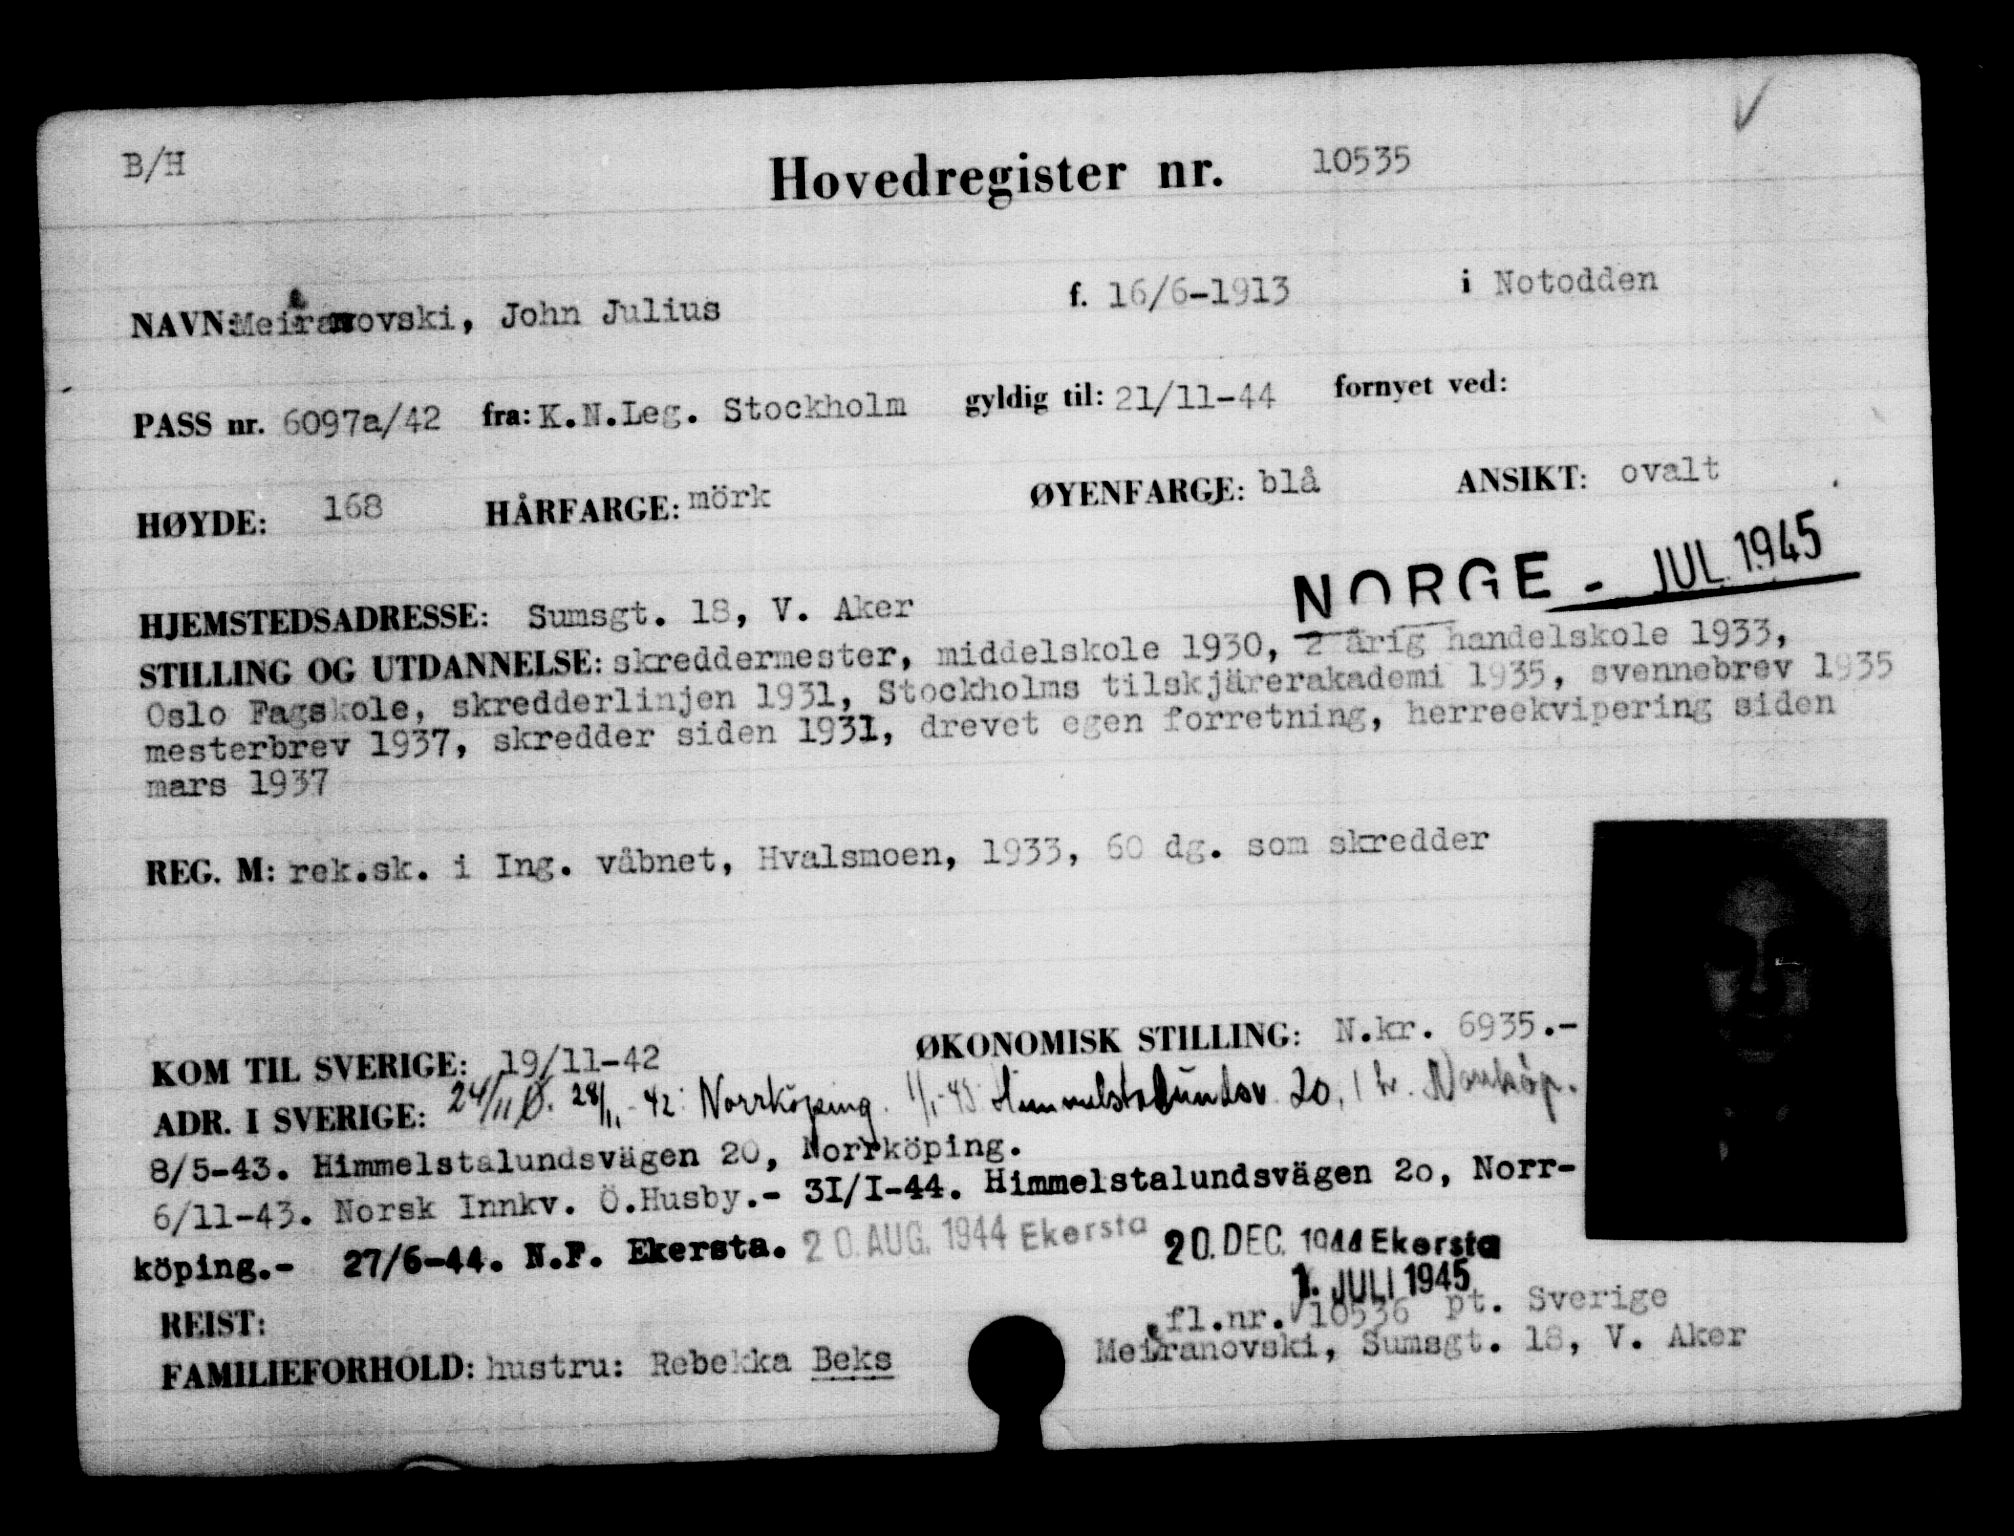 B/H
Hovedregister nr. 10535
NAVN: Meiranovski, John Julius f. 16/6-1913 i Notodden
PASS nr. 6097a/42 fra: K.N.Leg. Stockholm gyldig til: 21/11-44 fornyet ved:
HØYDE: 168 HÅRFARGE: mörk ØYENFARGE: blå ANSIKT: ovalt
NORGE - JUL 1945
HJEMSTEDSADRESSE: Sumsgt. 18, V. Aker
STILLING OG UTDANNELSE: skreddermester, middelskole 1930, 2 årig handelskole 1933,
Oslo Fagskole, skredderlinjen 1931, Stockholms tilskjärerakademi 1935, svennebrev 1935
mesterbrev 1937, skredder siden 1931, drevet egen forretning, herreekvipering siden
mars 1937
REG. M: rek.sk. i Ing. våbnet, Hvalsmoen, 1933, 60 dg. som skredder
KOM TIL SVERIGE: 19/11-42 ØKONOMISK STILLING: N.kr. 6935.-
ADR. I SVERIGE: 24/11 Ø. 28/11-42: Norrköping. 1/1-43 Himmelstalundsv 20, 1 tr. Norrköp.
8/5-43. Himmelstalundsvägen 20, Norrköping.
6/11-43. Norsk Innkv. Ö.Husby.- 3I/I-44. Himmelstalundsvägen 2o, Norr-
köping.- 27/6-44. N.F. Ekersta. 20. AUG. 1944 Ekersta 20. DEC. 1944 Ekersta
1. JULI 1945
REIST: fl.nr. 10536 pt. Sverige
FAMILIEFORHOLD: hustru: Rebekka Beks Meiranovski, Sumsgt. 18, V. Aker